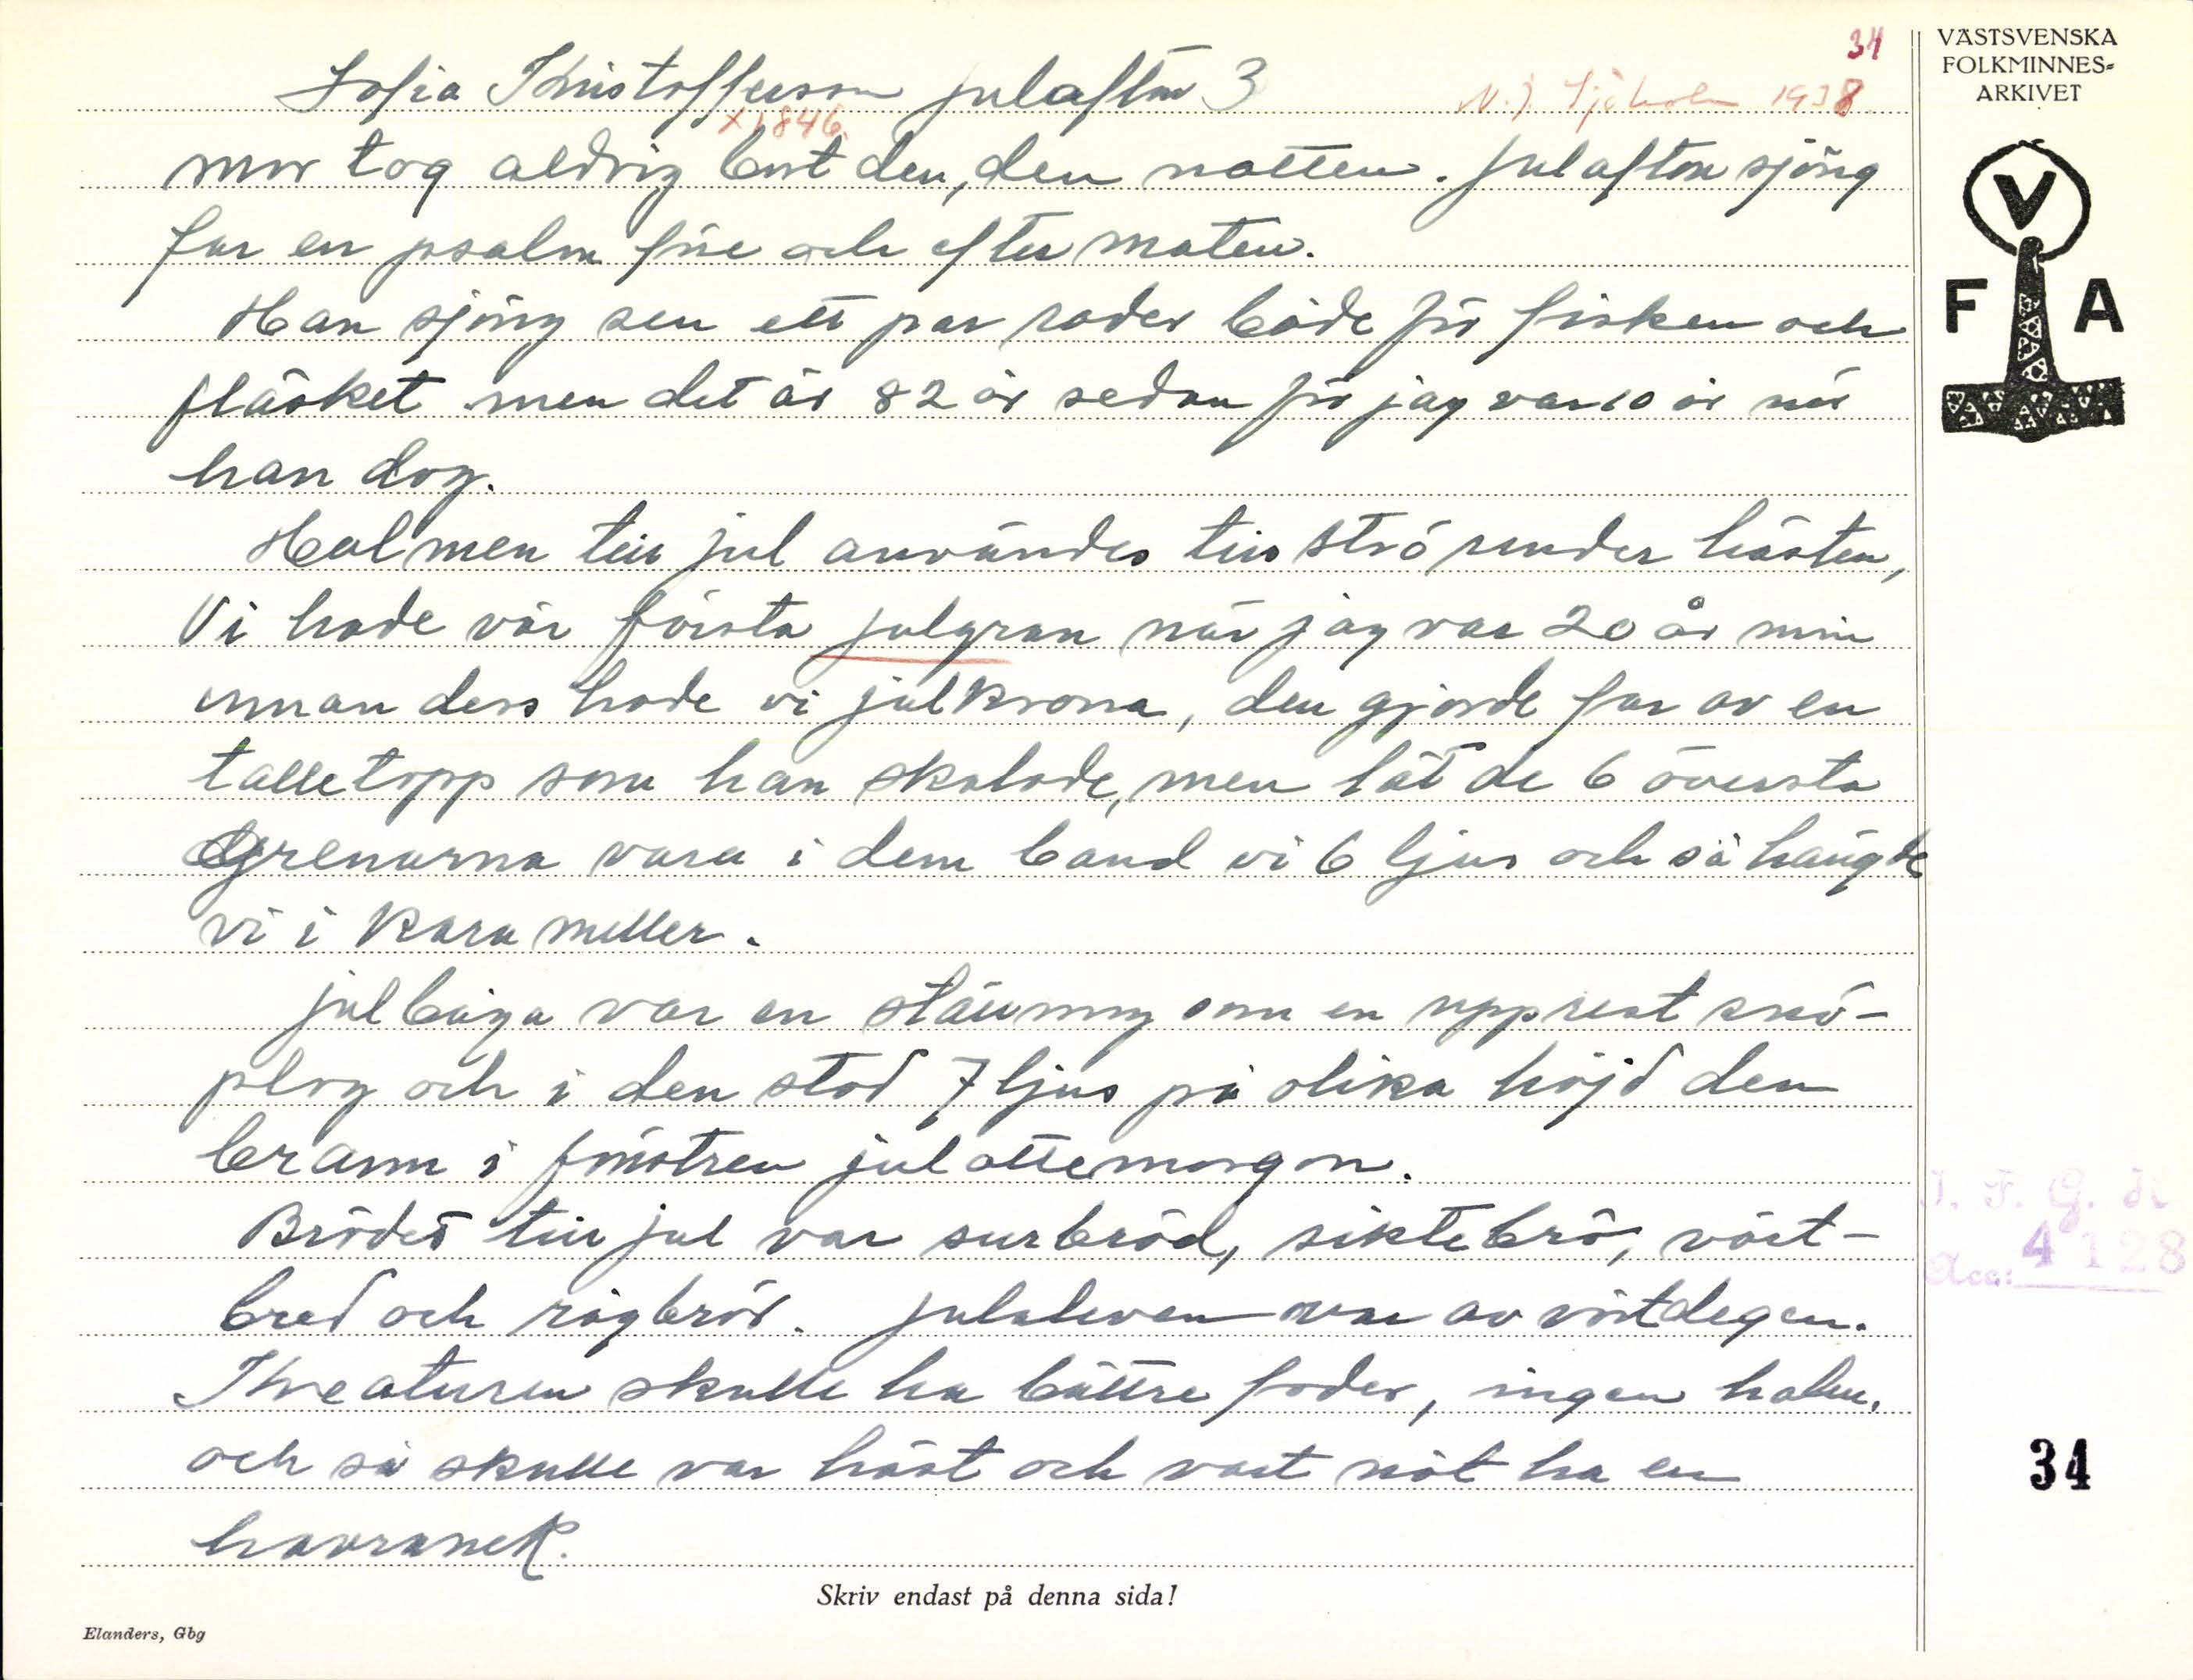 34
Sofia Kristofferson julafton 3
x 1846.
N. J. Sjöholm 1938
mor tog aldrig bort den, den natten. Julafton sjöng
far en psalm före och efter maten.
Han sjöng sen ett par rader både för fisken och
fläsket men det är 82 år sedan för jag var 10 år när
han dog.
Halmen till jul användes till strö under hästen,
Vi hade vår första julgran när jag var 20 år min
innan dess hade vi julkrona, den gjorde far av en
talletopp som han skalade, men lät de 6 översta
grenarna vara i dem band vi 6 ljus och så hängde
vi i karameller.
julbåga var en ställning som en upprest snö-
plog och i den stod 7 ljus på olika höjd den
brann i fönstren julottemorgon.
Brödet till jul var surbröd, siktebrö, vört-
bred och rågbröd. Julaleven var av vörtdegen.
Kreaturen skulle ha bättre foder, ingen halm,
och så skulle var häst och vart nöt ha en
havranek.
Skriv endast på denna sida!
Elanders, Gbg
VÄSTSVENSKA
FOLKMINNES-
ARKIVET
V
F A
I. F. G. H
Acc: 4128
34